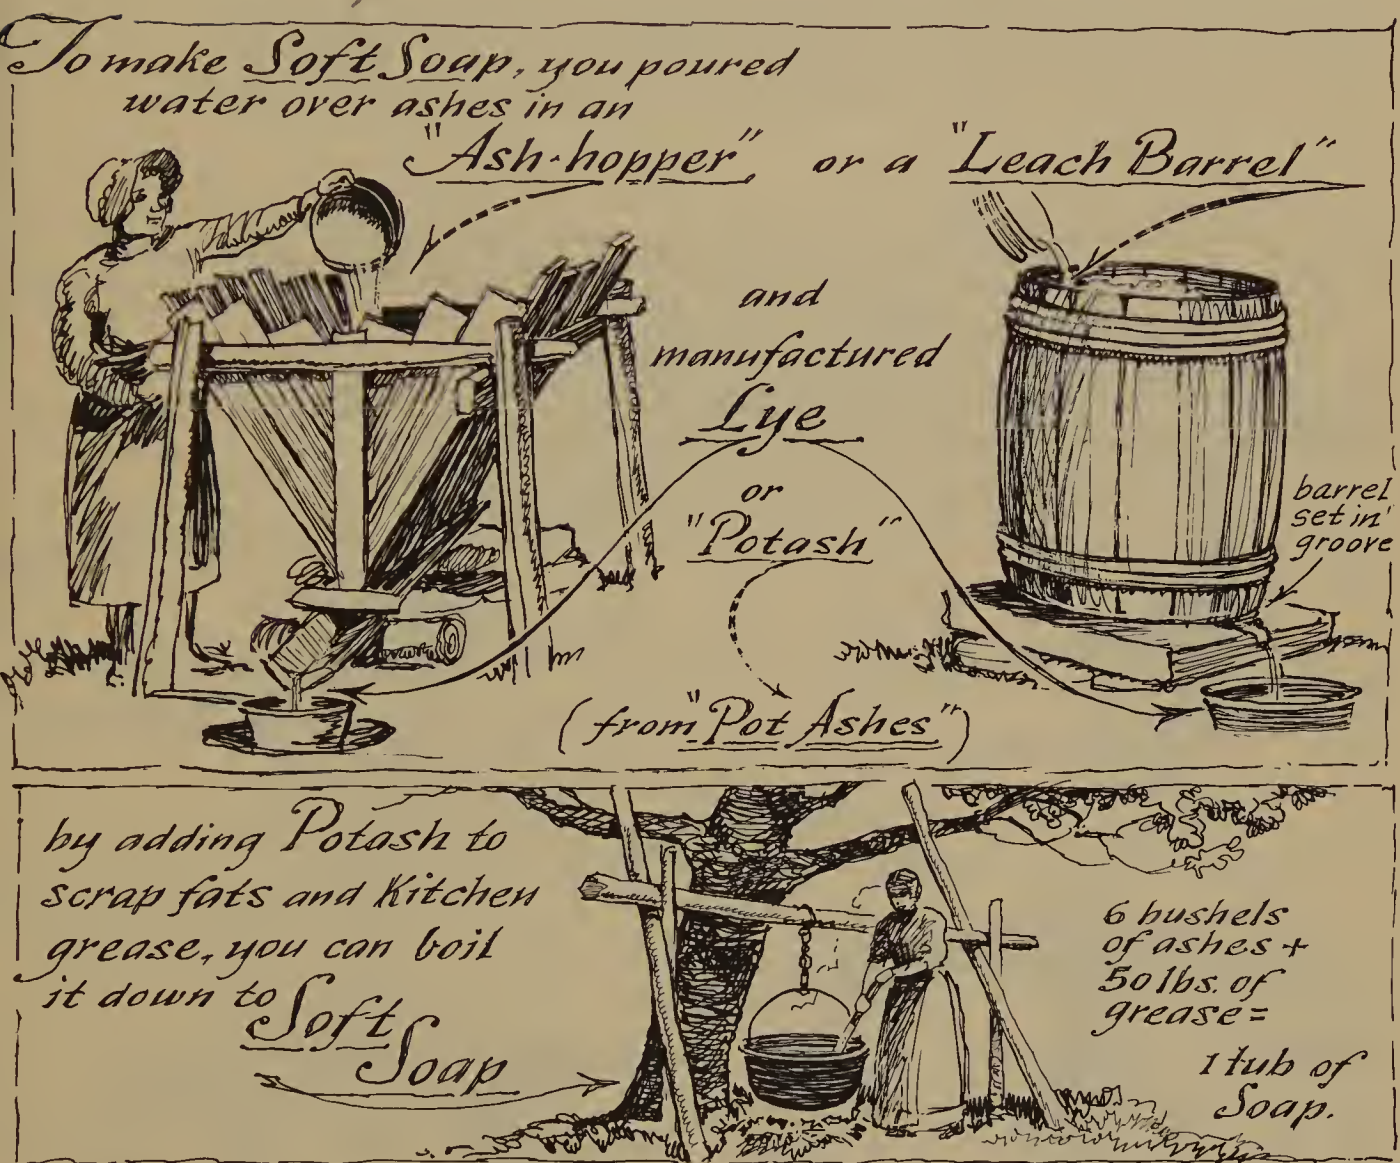 To make Soft Soap, you poured
water over ashes in an
"Ash-hopper" or a "Leach Barrel"
and
manufactured
Lye
or
"Potash"
(from "Pot Ashes")
barrel
set in'
groove
by adding Potash to
scrap fats and Kitchen
grease, you can boil
it down to
Soft
Soap
6 bushels
of ashes +
50 lbs. of
grease =
1 tub of
Soap.